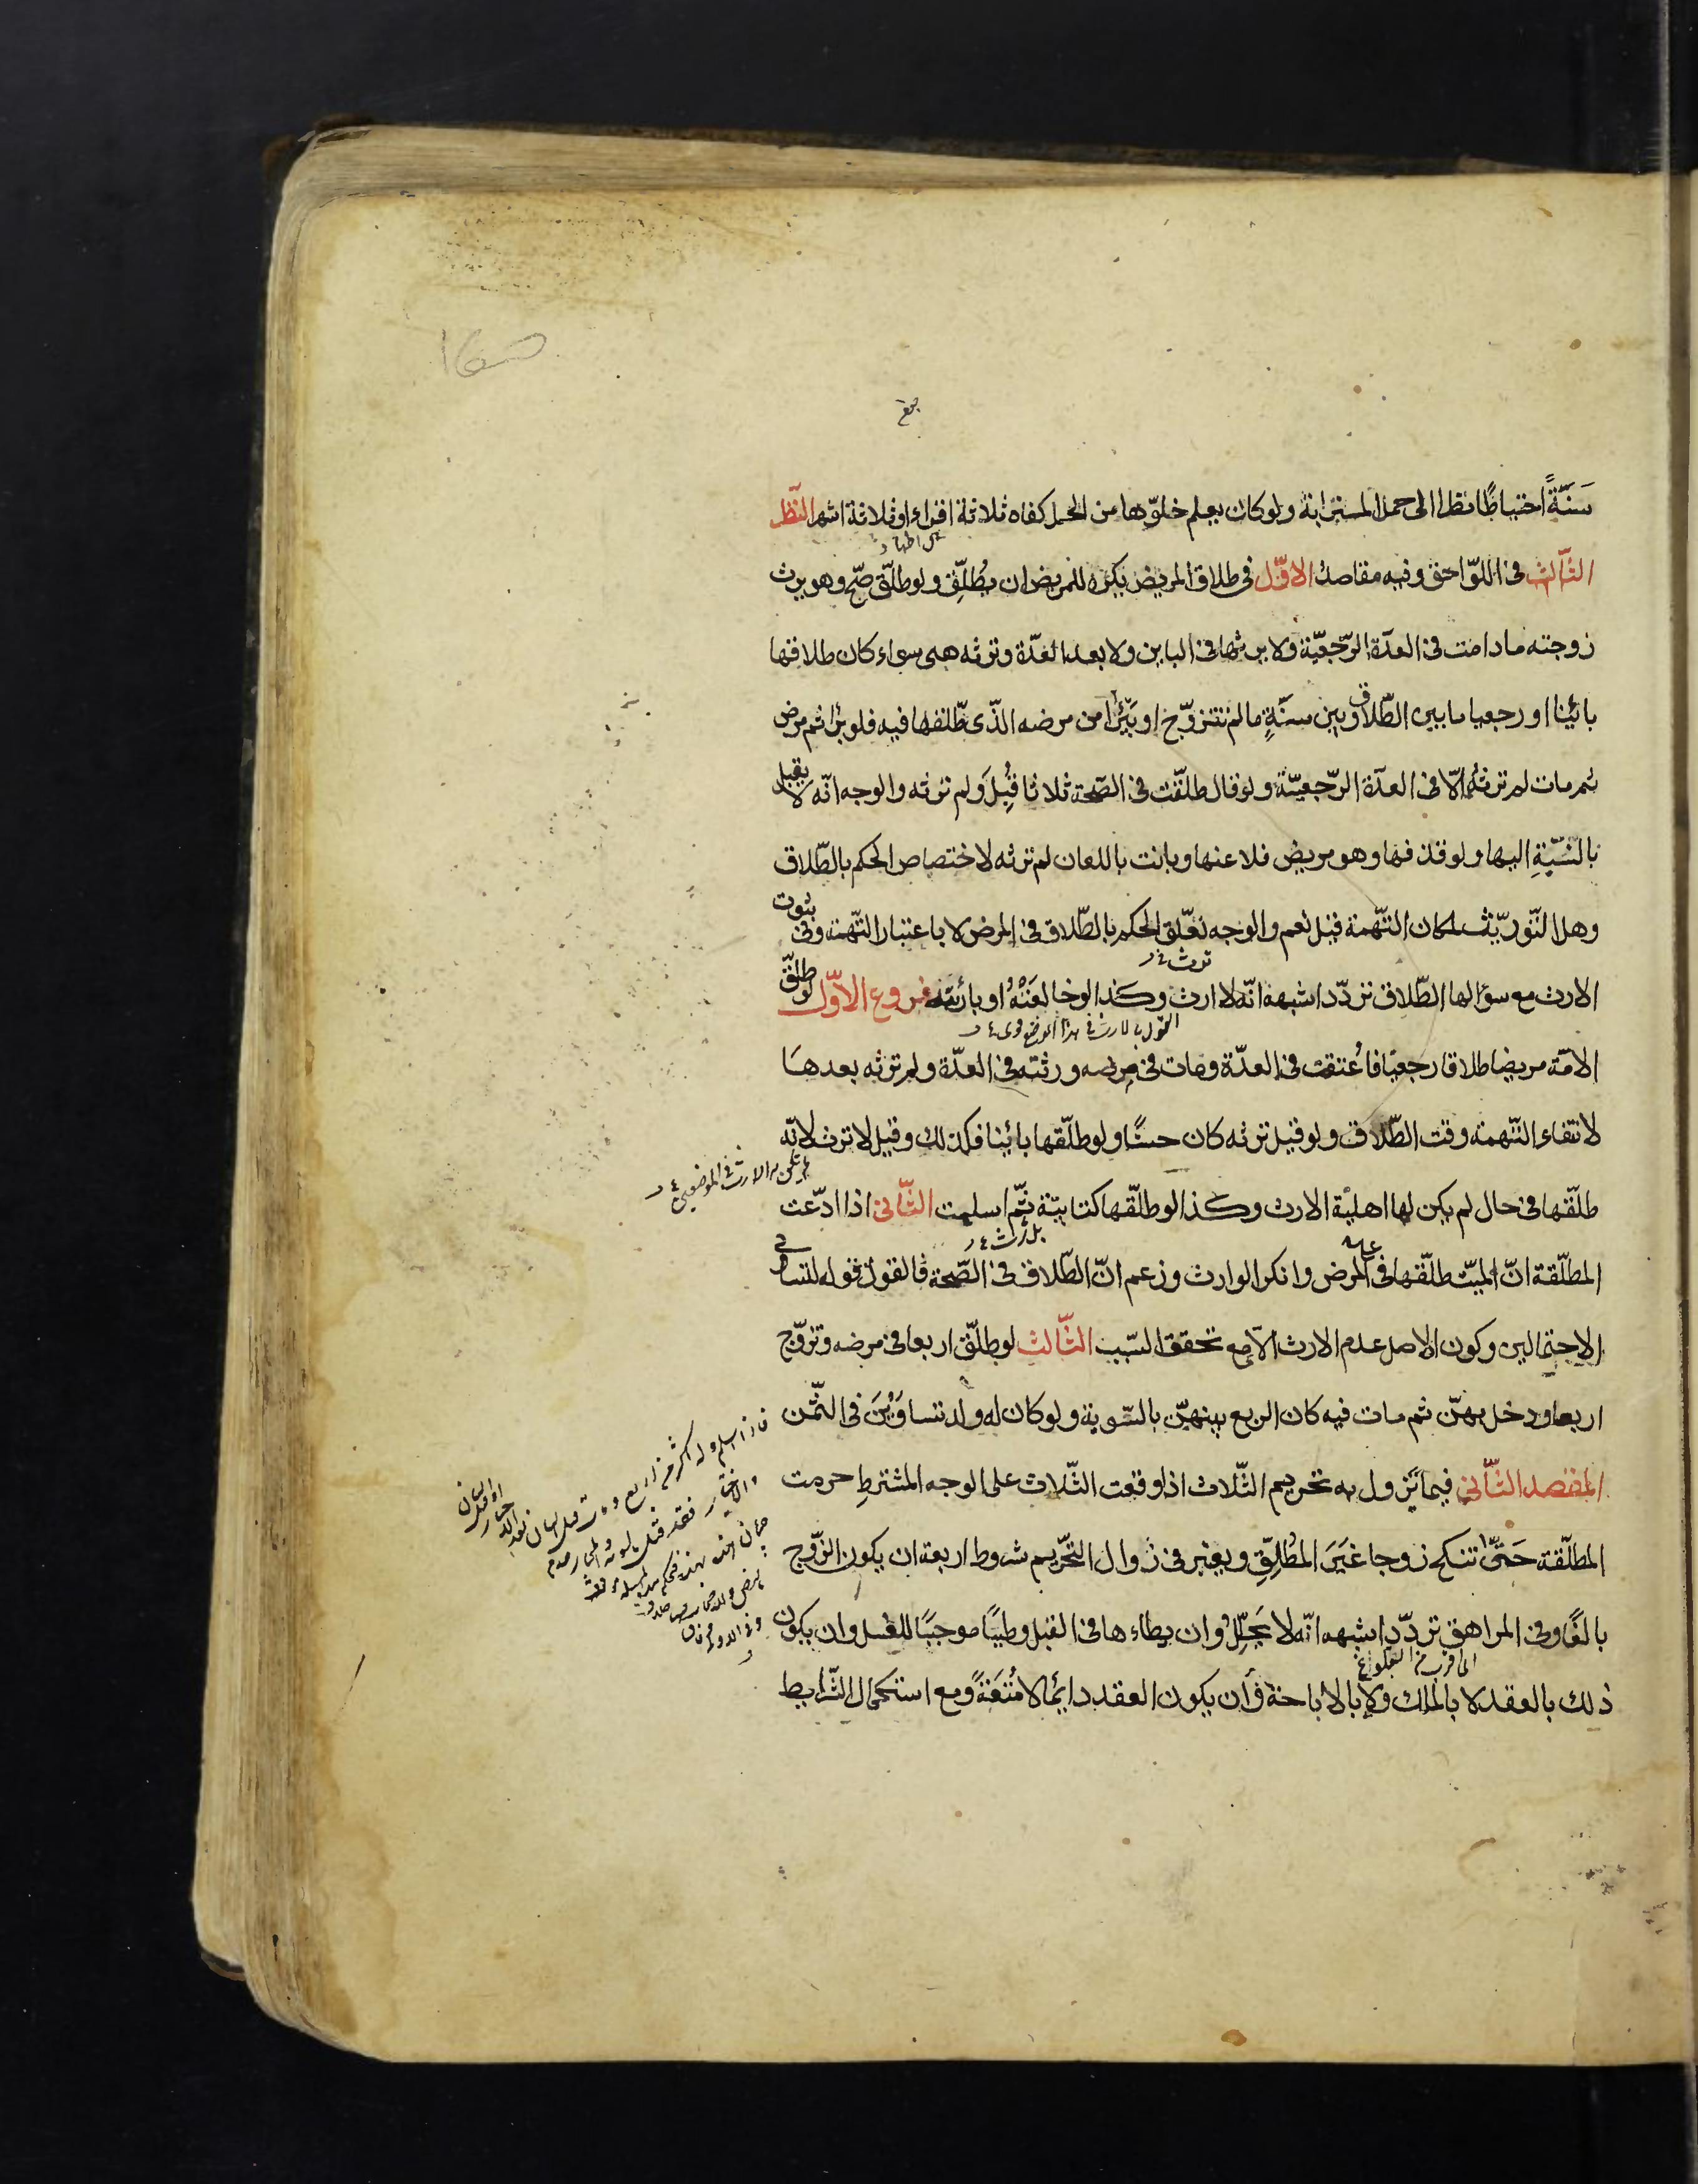 سَنَةً احتياطًا نظرا الى حمل المسترابة ولو كان يعلم خلوّها من الحمل كفاه ثلاثة اقراء او ثلاثة اشهر النّظر
الثّالث فى اللّواحق وفيه مقاصد الاوّل فى طلاق المريض يكره للمريض ان يُطلّق ولو طلّق صحّ وهو يرث
زوجته مادامت فى العدّة الرّجعيّة ولا يرثها فى الباين ولا بعد العدّة وترثه هى سواء كان طلاقها
بائنا او رجعيا ما بين الطّلاق وبين سنةٍ ما لم تتزوّج او يبرأ من مرضه الذّى طلّقها فيه فلو برأ ثم مرض
ثم مات لم ترثه الّا فى العدّة الرّجعيّة ولو قال طلّقت فى الصّحة ثلاثا قُبِلَ ولم ترثه والوجه انّه لا يقبل
بالنّسبةِ اليها ولو قذفها وهو مريض فلاعنها وبانت باللعان لم ترثه لاختصاص الحكم بالطّلاق
وهل التّوريث لمكان التّهمة قيل نعم والوجه تعلّق الحكم بالطّلاق فى المرض لا باعتبار التّهمة وفى ثبوت
الارث مع سؤالها الطّلاق تردّد اشبهه انّه لا ارث وكذا لو خالعَتْهُ او بارئته فروع الاوّل لو طلّق
القول بالارث فى هذا الموضع قوى
الامّة مريضا طلاقا رجعيّا فاُعتقت فى العدّة ومات فى مرضه ورثته فى العدّة ولم ترثه بعدها
لانتفاء التّهمة وقت الطّلاق ولو قيل ترثه كان حسنًا ولو طلّقها بائينا فكذلك وقيل لا ترث لانّه
طلّقها فى حال لم يكن لها اهليّة الارث وكذا لو طلّقها كتابيّة ثمّ اسلمت الثّانى اذا ادّعت
المطلّقة انّ الميّت طلّقها فى المرض وانكر الوارث وزعم انّ الطّلاق فى الصّحة فالقول قوله لتساوى
الاحتمالين وكون الاصل عدم الارث الّا مع تحقق السّبب الثّالث لو طلّق اربعا فى مرضه وتزوّج
اربعا ودخل بهنّ ثم مات فيه كان الربع بينهنّ بالسّوية ولو كان له ولد تساوَيْنَ فى الثّمن
المقصد الثّانى فيما يزول به تحريم الثّلاث اذا وقعت الثّلاث على الوجه المشترط حرمت
المطلّقة حَتّى تنكح زوجا غيَرَ المُطلِّقِ ويعتبر فى زوال التّحريم شروط اربعة ان يكون الزّوج
بالغًا وفى المراهق تردّد اشبهه انّه لا يَحلِّلُ وان يطاءها فى القبل وطيًا موجبًا للغسل وان يكون
ذلك بالعقد لا بالملك ولا بالاباحة وأن يكون العقد دائما لا مُتعَةً ومع استكمال الشّرايط